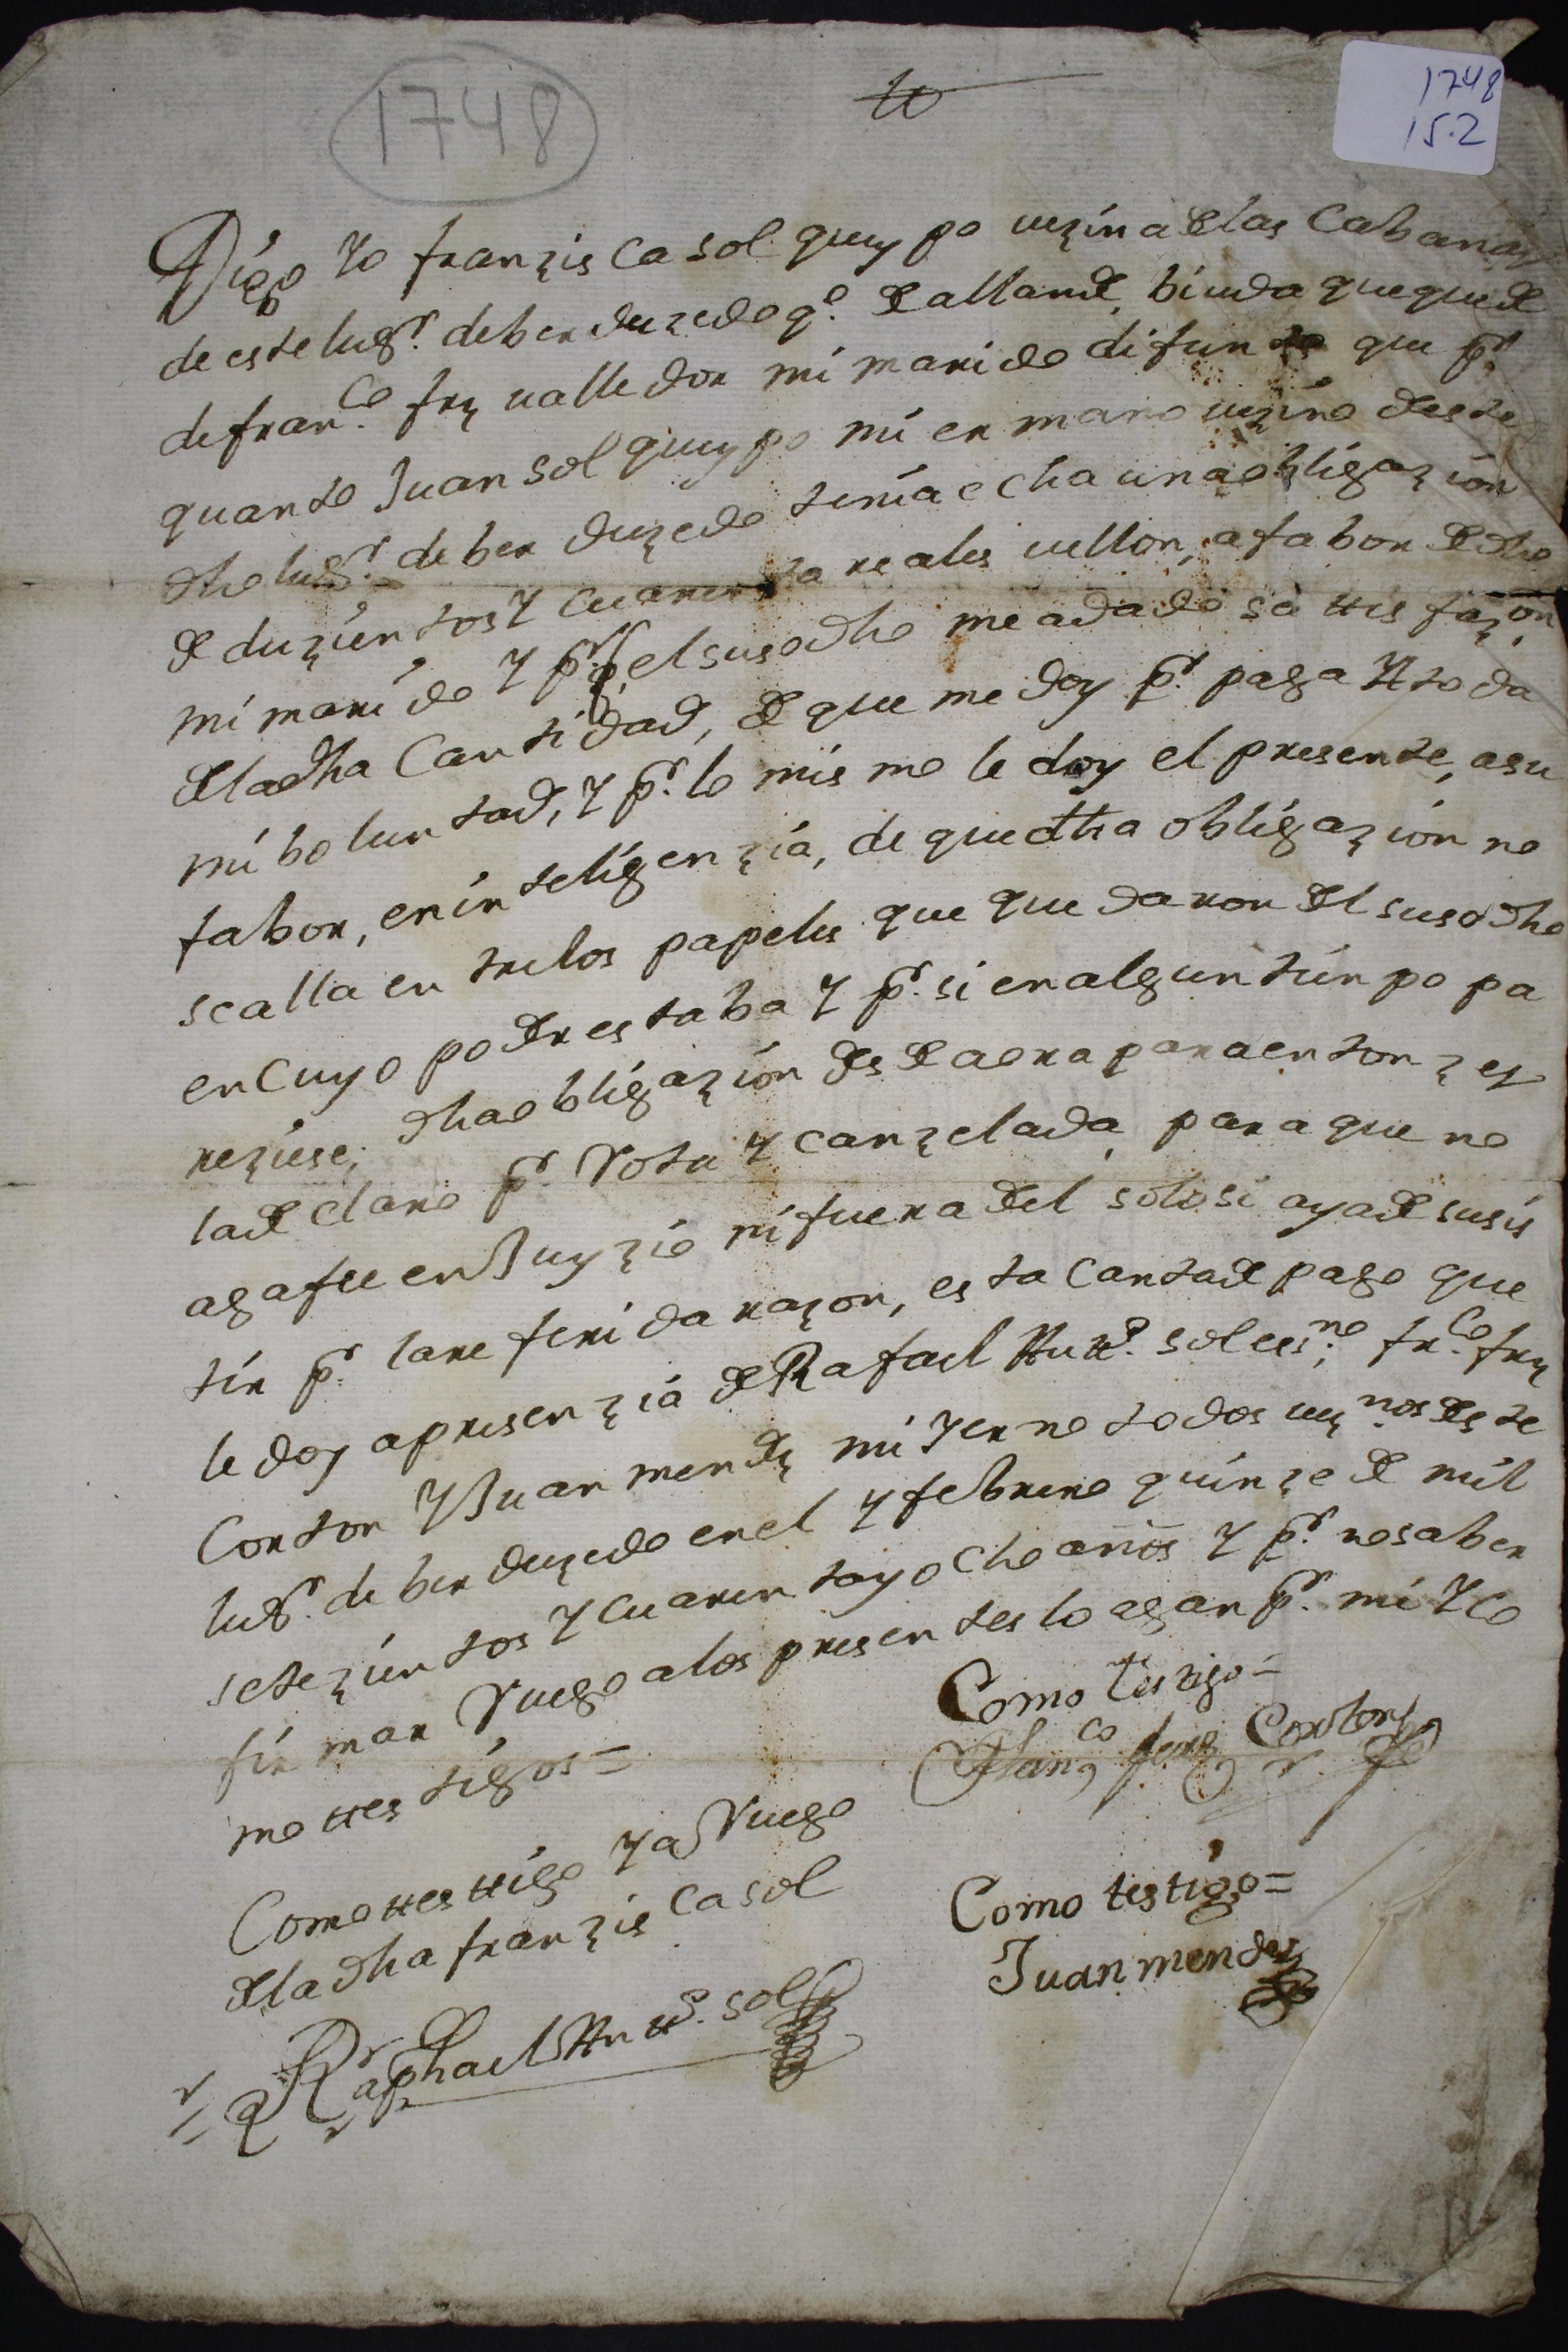 1748
1748
15.2
Digo Yo franzisca sol queypo uezina de las Cabanas
de este lugr. de berduzedo qo. de allande, biuda que quede
de franco. frz ualledor mi marido difunto que pr.
quanto Juan sol queypo mi ermano uezino deste
dho lugr. de berduzedo tenia echa una obligazion
de duzientos y cuarenta reales uellon, a fabor de dho
mi marido y pr. q el susodho me a dado sattisfazon
de la dha Cantidad, de que me doy pr. paga a toda
mi boluntad, y pr. lo mismo le doy el presente, a su
fabor, en inteligenzia, de que dha obligazion no
se alla entre los papeles que quedaron del susodho
en Cuyo poder estaba y pr. si en algun tienpo pa
reziese, dha obligazion desde aora para entonzes
la declaro pr. Rota y canzelada, para que no
aga fee en Juyzio ni fuera del solo si aya de susis
tir pr. la referida razon, esta Carta de pago que
le doy a presenzia de Rafael sol esno., frco. frz
Corton y Juan mendz mi yerno todos ueznos deste
lugr. de berduzedo en el y febrero quinze de mil
setezientos y cuarenta y ocho años y pr. no saber
firmar Ruego a los presentes lo agan pr. mi y Co
mo ttestigos=
Como testigo=
Franco fernz Corton
Como ttesttigo y a Ruego
de la dha franzisca sol
Como testigo=
Juan mendez
Raphael sol